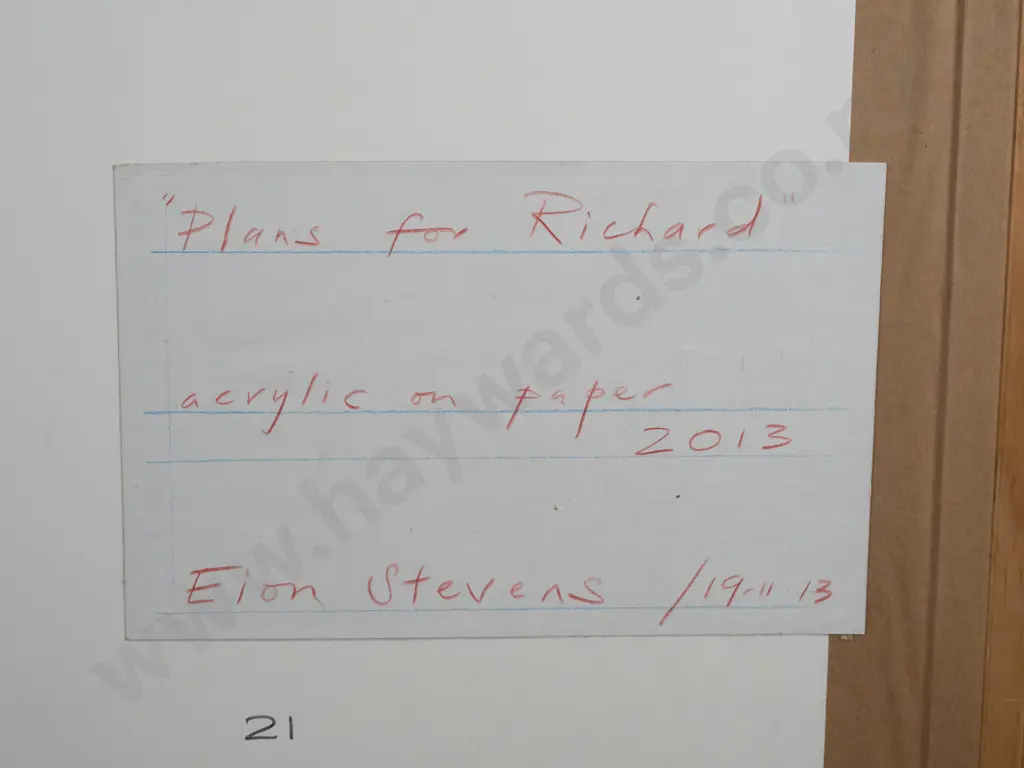 "Plans for Richard"
acrylic on paper
2013
Eion Stevens /19·11·13
21
www.haywards.co.